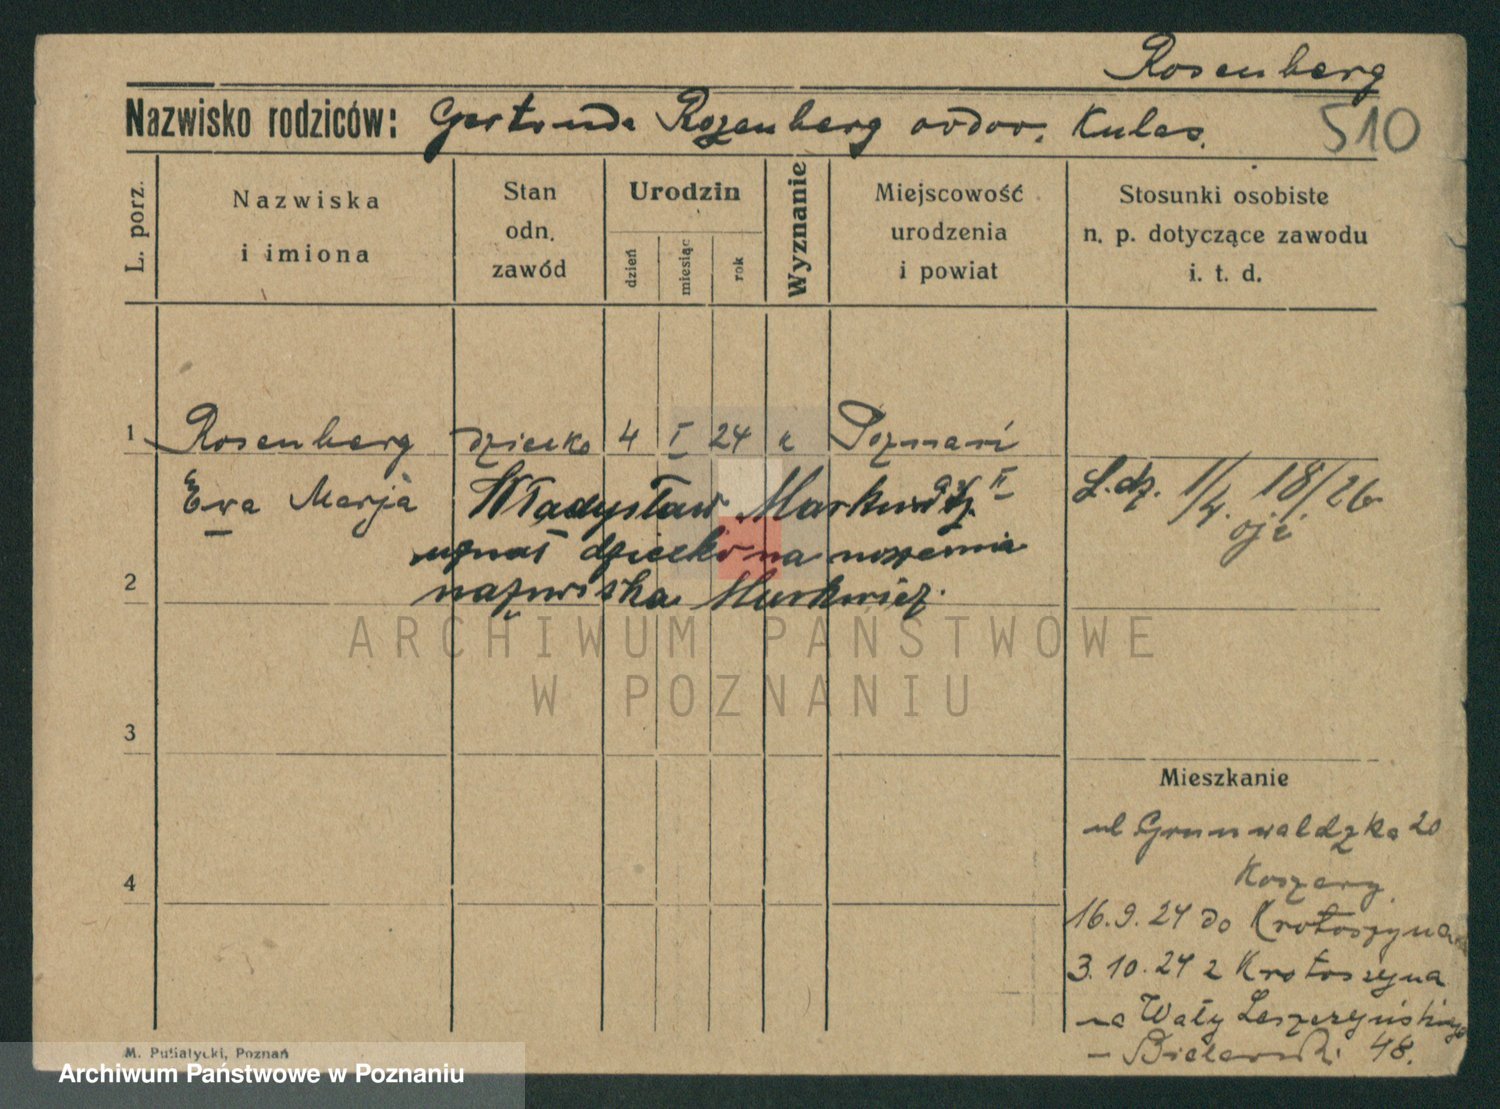 Rosenberg
Nazwisko rodziców: Gertruda Rozenberg Kulas.
510
L. porz.
Nazwiska i imiona
Stan odn. zawód
Urodzin
dzień
miesiąc
rok
Wyznanie
Miejscowość urodzenia i powiat
Stosunki osobiste n. p. dotyczące zawodu i. t. d.
1 Rosenberg dziecko 4 I 24 k Poznań
Ewa Marja
Władysław Markwicz
L.dz. 1/4. 18/26
uznał dziecko na noszenie
2
nazwiska Markwicz.
ARCHIWUM PAŃSTWOWE
W POZNANIU
3
Mieszkanie
ul Grunwaldzka 20
4
Koszary
16.9.24 do Krotoszyna
3.10.24 z Krotoszyna
na Wały Leszczyńskiego
– Bielawski 48.
M. Putiatycki, Poznań
Archiwum Państwowe w Poznaniu